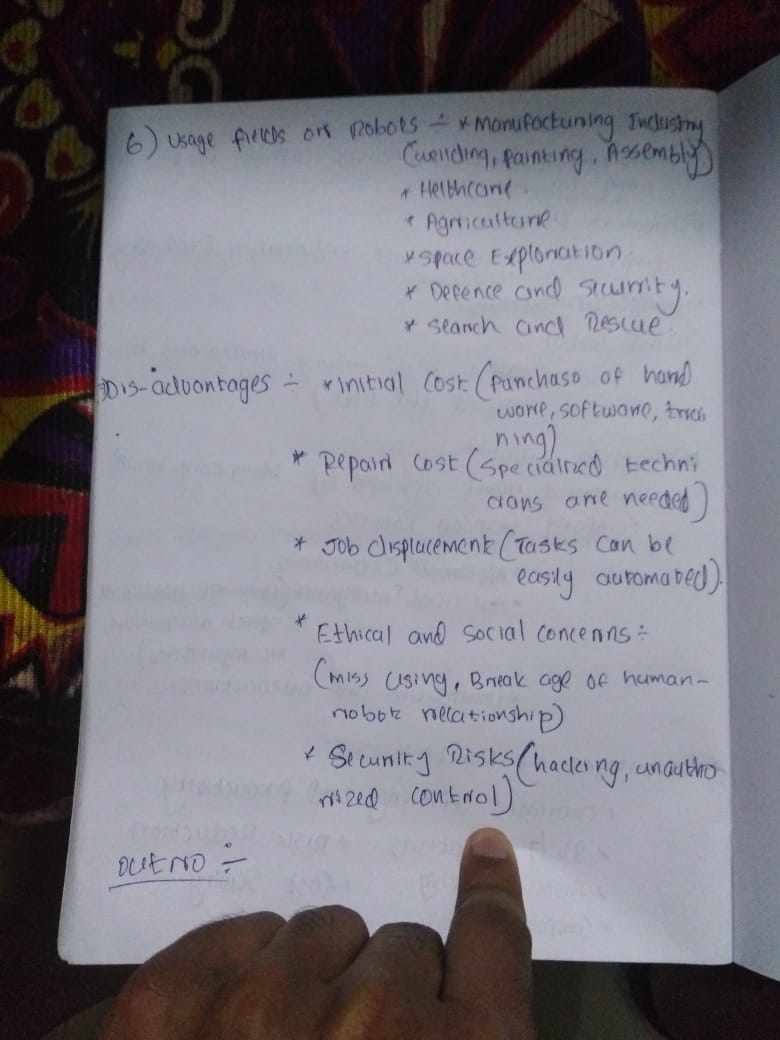 6) Usage fields of Robots ÷ * Manufacturing Industry
(welding, painting, Assembly)
* Helthcare.
* Agriculture.
* Space Exploration.
* Defence and Security.
* Search and Rescue.
Dis-advantages ÷ * Initial Cost (purchase of hard
ware, software, trai
ning)
* Repair Cost (Specialized techni
cians are needed)
* Job displacement (Tasks can be
easily automated).
* Ethical and Social concerns ÷
(miss using, Break age of human-
robot relationship)
* Security Risks (hacking, unautho
rized control)
OUTRO ÷